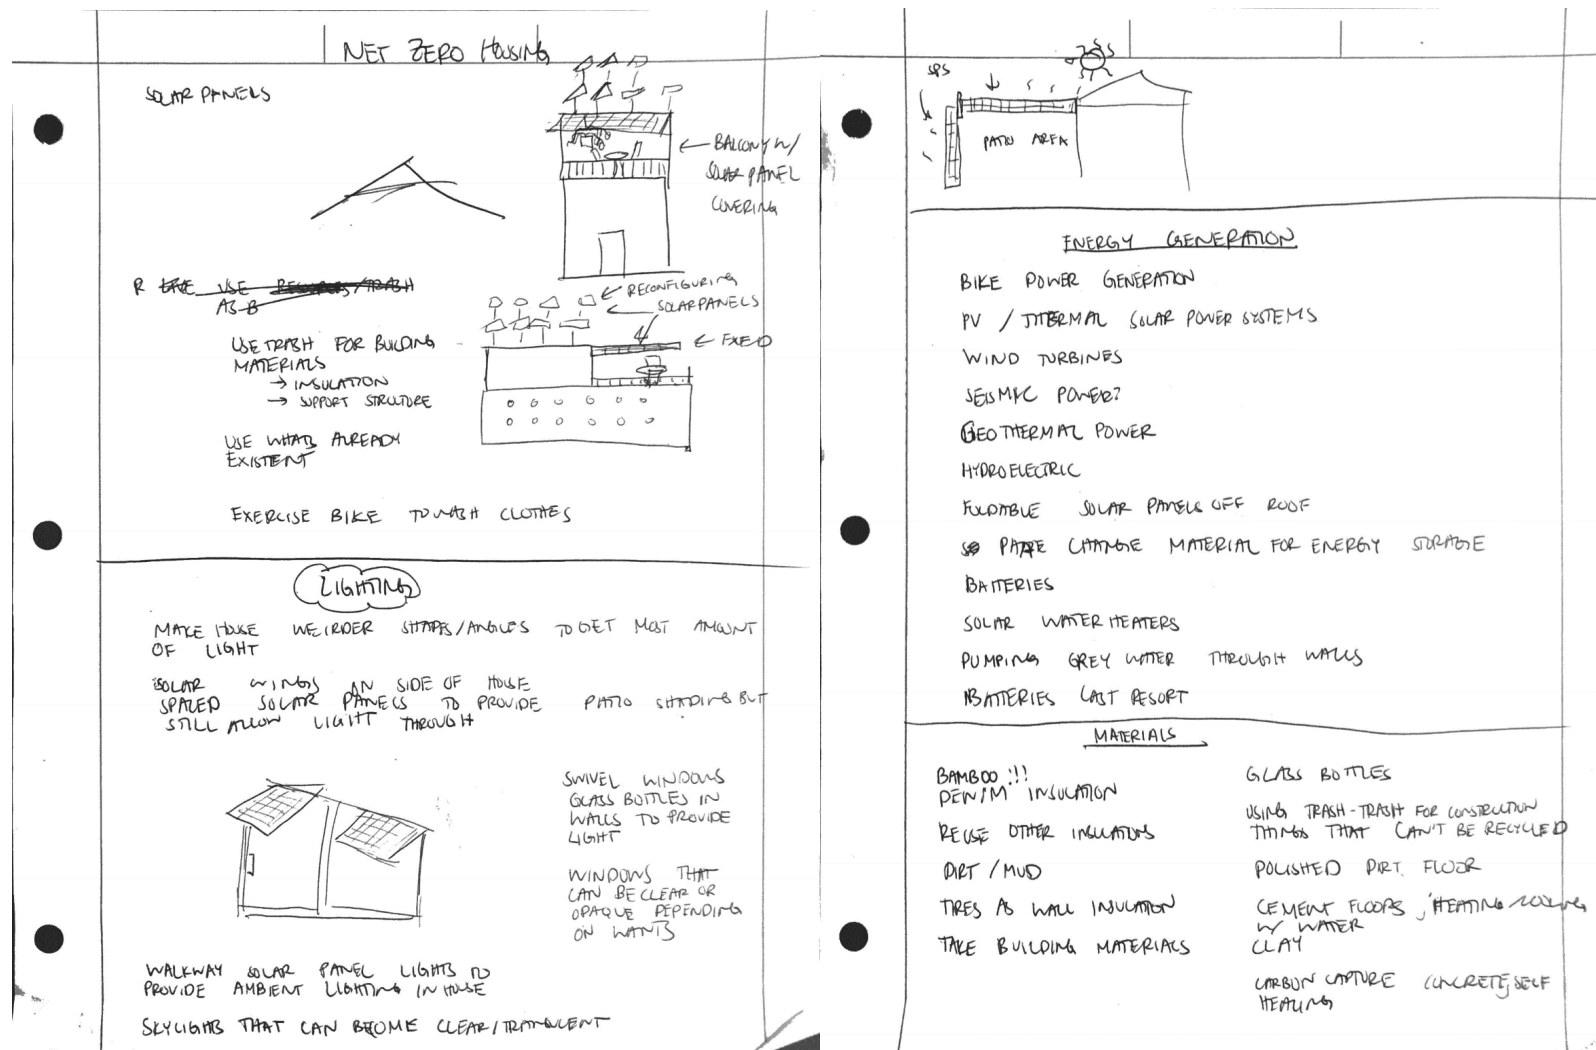 NET ZERO HOUSING
SOLAR PANELS
← BALCONY W/
SOLAR PANEL
COVERING
R USE RESOURCES/TRASH
AS B
← RECONFIGURING
← SOLAR PANELS
← FIXED
USE TRASH FOR BUILDING
MATERIALS
→ INSULATION
→ SUPPORT STRUCTURE
USE WHATS ALREADY
EXISTENT
EXERCISE BIKE TO WASH CLOTHES
LIGHTING
MAKE HOUSE WEIRDER SHAPES/ANGLES TO GET MOST AMOUNT
OF LIGHT
SOLAR WINGS ON SIDE OF HOUSE
SPACED SOLAR PANELS TO PROVIDE PATIO SHADING BUT
STILL ALLOW LIGHT THROUGH
SWIVEL WINDOWS
GLASS BOTTLES IN
WALLS TO PROVIDE
LIGHT
WINDOWS THAT
CAN BE CLEAR OR
OPAQUE DEPENDING
ON WANTS
WALKWAY SOLAR PANEL LIGHTS TO
PROVIDE AMBIENT LIGHTING IN HOUSE
SKYLIGHTS THAT CAN BECOME CLEAR/TRANSLUCENT
SPS
PATIO AREA
ENERGY GENERATION
BIKE POWER GENERATION
PV / THERMAL SOLAR POWER SYSTEMS
WIND TURBINES
SEISMIC POWER?
GEOTHERMAL POWER
HYDROELECTRIC
FOLDABLE SOLAR PANELS OFF ROOF
CHANGE MATERIAL FOR ENERGY STORAGE
BATTERIES
SOLAR WATER HEATERS
PUMPING GREY WATER THROUGH WALLS
BATTERIES LAST RESORT
MATERIALS
BAMBOO !!!
DENIM INSULATION
REUSE OTHER INSULATORS
DIRT / MUD
TIRES AS WALL INSULATION
TAKE BUILDING MATERIALS
GLASS BOTTLES
USING TRASH-TRASH FOR CONSTRUCTION
THINGS THAT CAN'T BE RECYCLED
POLISHED DIRT FLOOR
CEMENT FLOORS, HEATING/COOLING
W/ WATER
CLAY
CARBON CAPTURE CONCRETE, SELF
HEALING